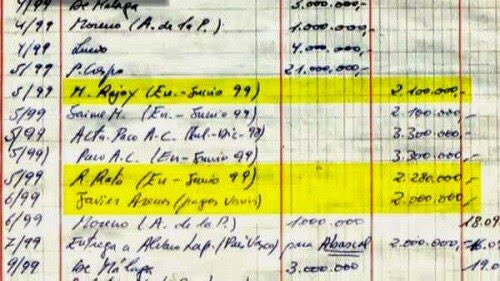 4/99 De Málaga 5.000.000.-
4/99 Moreno (A. de la P.) 1.000.000.-
4/99 4.000.000.-
5/99 P. Crespo 21.000.000.-
5/99 M. Rajoy (En.- Junio 99) 2.100.000,-
5/99 Jaime M. (En.- Junio 99) 2.100.000,-
5/99 Paco A.C. (Jul-Dic-98) 3.300.000,-
5/99) Paco A.C. (En - Junio 99) 3.300.000,-
5/99 R. Rato (En - Junio 99) 2.280.000,-
6/99 Javier Arenas (pagos varios) 2.000.000,-
6/99 Moreno (A. de la P.) 1.000.000 18.09
7/99 Entrega a (País Vasco) para Abascal 2.000.000.-
9/99 De Málaga 3.000.000 19.0